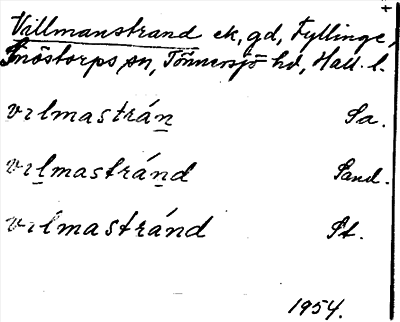 Villmanstrand ek, gd, Fyllinge,
Snöstorps sn, Tönnersjö hd, Hall. l.
vılmastrán Sa.
vılmastránd Sand.
vılmastránd St.
1954.